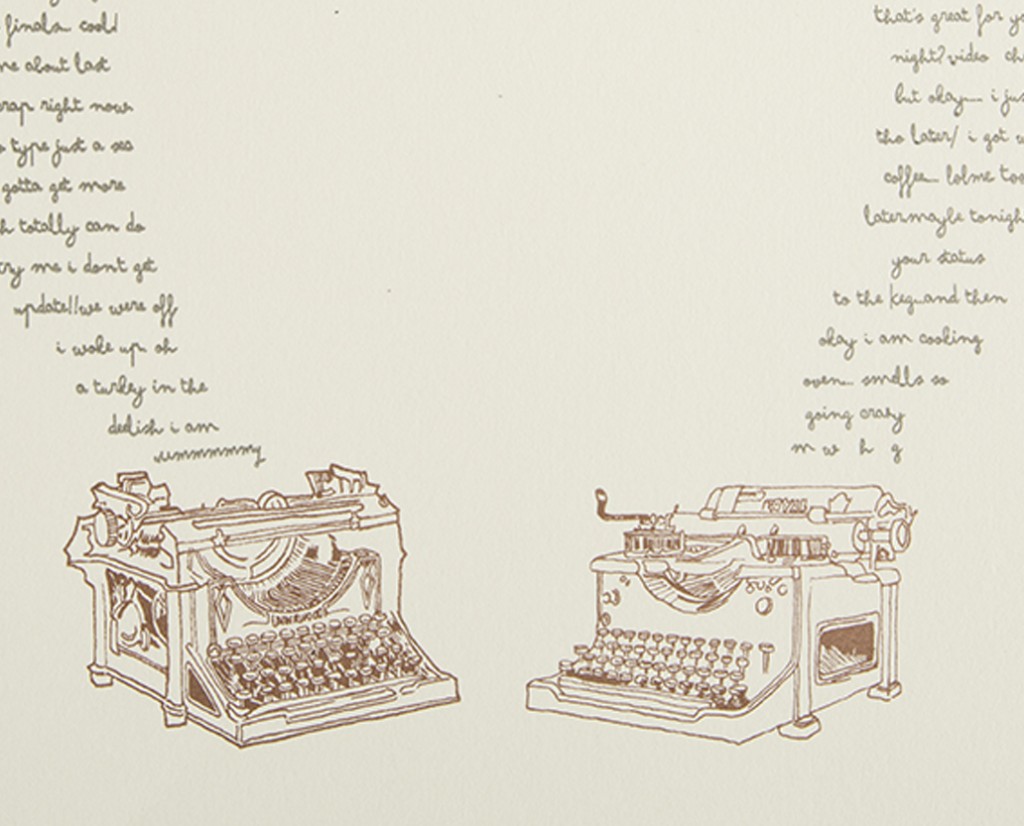 finals.. cool!
me about last
crap right now
type just a sec
gotta get more
totally can do
try me i dont get
update!!we were off
i woke up oh
a turkey in the
delish i am
ummmmmmy
that's great for yo
night?video ch
but okay.... i jus
tho later/ i got
coffee... lolme too
latermaybe tonigh
your status
to the keg...and then
okay i am cooking
oven... smells so
going crazy
m w h g
ROYAL